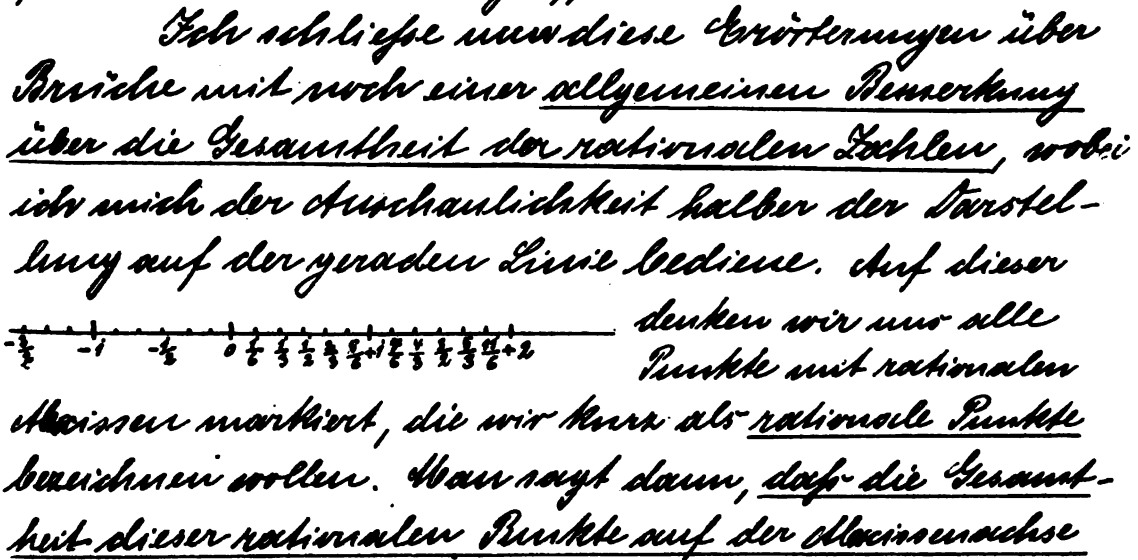 Ich schließe nun diese Erörterungen über
Brüche mit noch einer allgemeinen Bemerkung
über die Gesamtheit der rationalen Zahlen, wobei
ich mich der Anschaulichkeit halber der Darstel-
lung auf der geraden Linie bediene. Auf dieser
denken wir uns alle
-3/2 -1 -1/2 0 1/6 1/3 1/2 2/3 5/6 +1 7/6 4/3 3/2 5/3 11/6 +2
Punkte mit rationalen
Abscissen markiert, die wir kurz als rationale Punkte
bezeichnen wollen. Man sagt dann, daß die Gesamt-
heit dieser rationalen Punkte auf der Abscissenachse